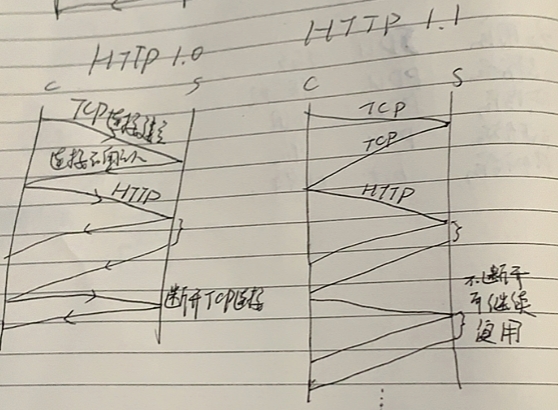 HTTP 1.0
C S
TCP连接建立
连接已确认
HTTP
断开TCP连接
HTTP 1.1
C S
TCP
TCP
HTTP
不断开
可继续
使用